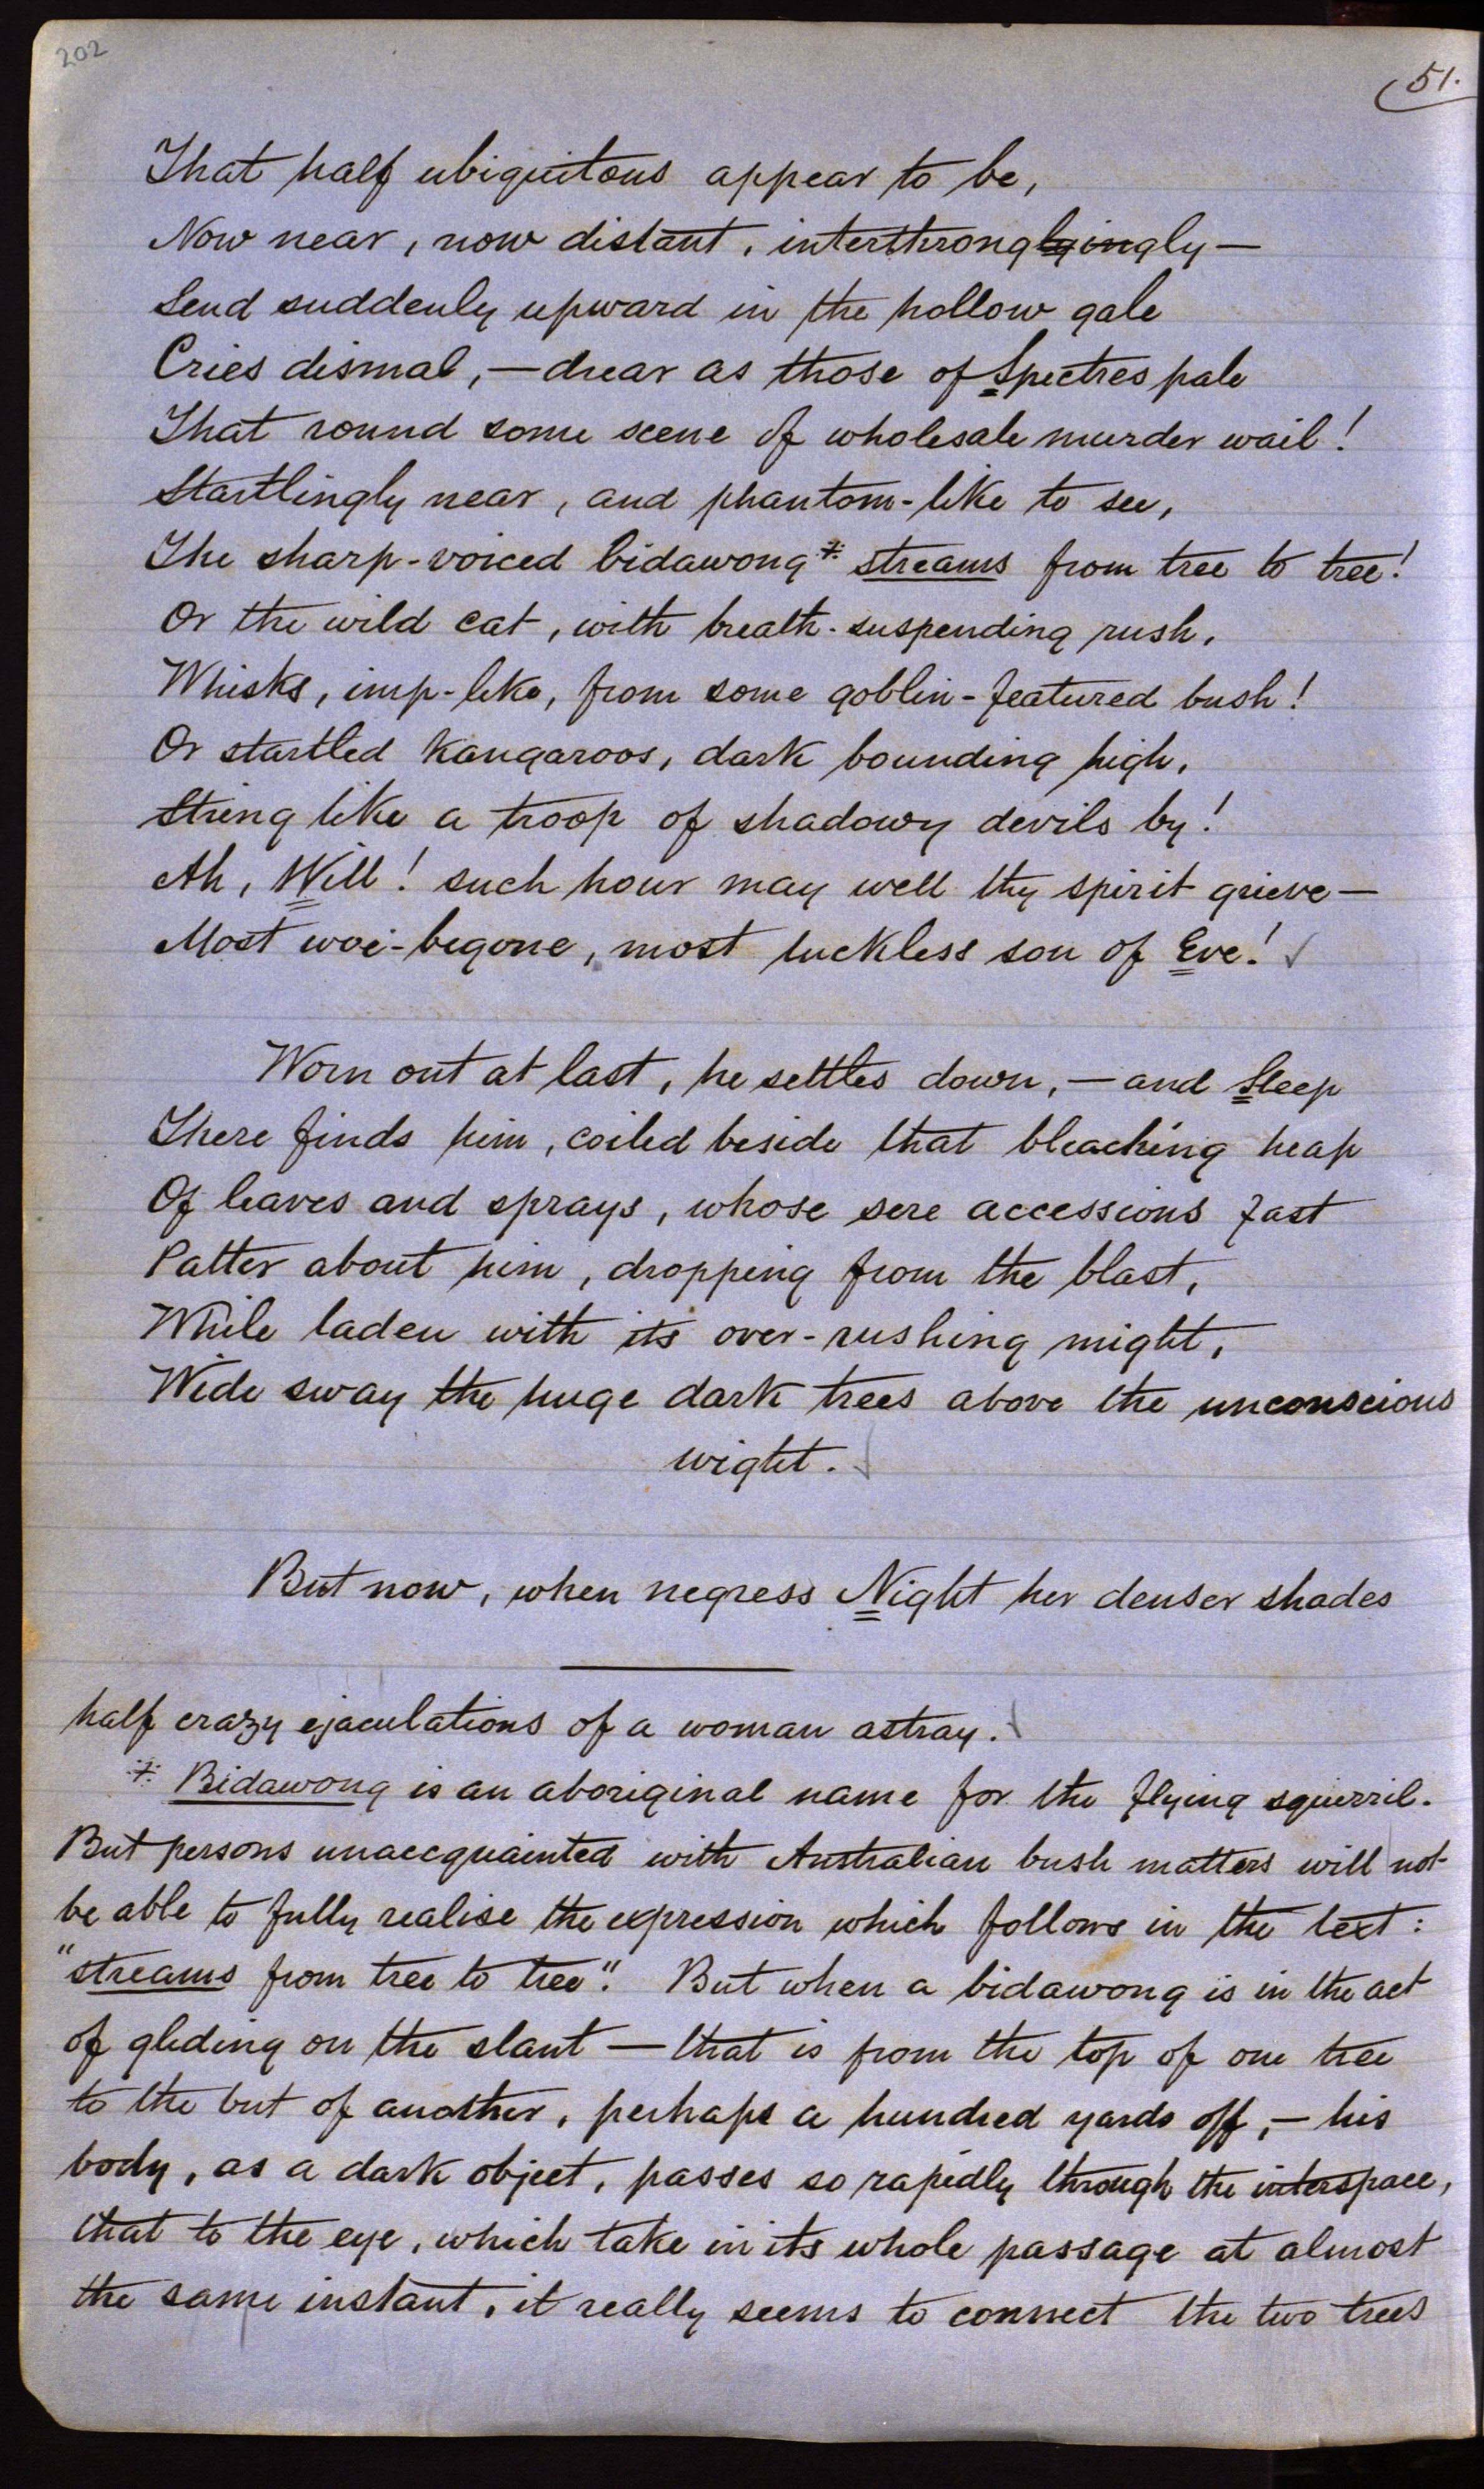 202
51.
That half ubiquitous appear to be,
Now near, now distant, interthronglyingly—
Send suddenly upward in the hollow gale
Cries dismal,—drear as those of Spectres pale
That round some scene of wholesale murder wail!
Startlingly near, and phantom-like to see,
The sharp-voiced bidawong* streams from tree to tree!
Or the wild cat, with breath-suspending rush,
Whisks, imp-like, from some goblin-featured bush!
Or startled kangaroos, dark bounding high,
String like a troop of shadowy devils by!
Ah, Will! such hour may well thy spirit grieve—
Most woe-begone, most luckless son of Eve! ✓
Worn out at last, he settles down,—and Sleep
There finds him, coiled beside that bleaching heap
Of leaves and sprays, whose sere accessions fast
Patter about him, dropping from the blast,
While laden with its over-rushing might,
Wide sway the huge dark trees above the unconscious
wight. ✓
But now, when negress Night her denser shades
half crazy ejaculations of a woman astray. ✓
* Bidawong is an aboriginal name for the flying squirril.
But persons unaccquainted with Australian bush matters will not
be able to fully realise the expression which follows in the text:
"streams from tree to tree". But when a bidawong is in the act
of gliding on the slant—that is from the top of one tree
to the but of another, perhaps a hundred yards off,—his
body, as a dark object, passes so rapidly through the interspace,
that to the eye, which take in its whole passage at almost
the same instant, it really seems to connect the two trees